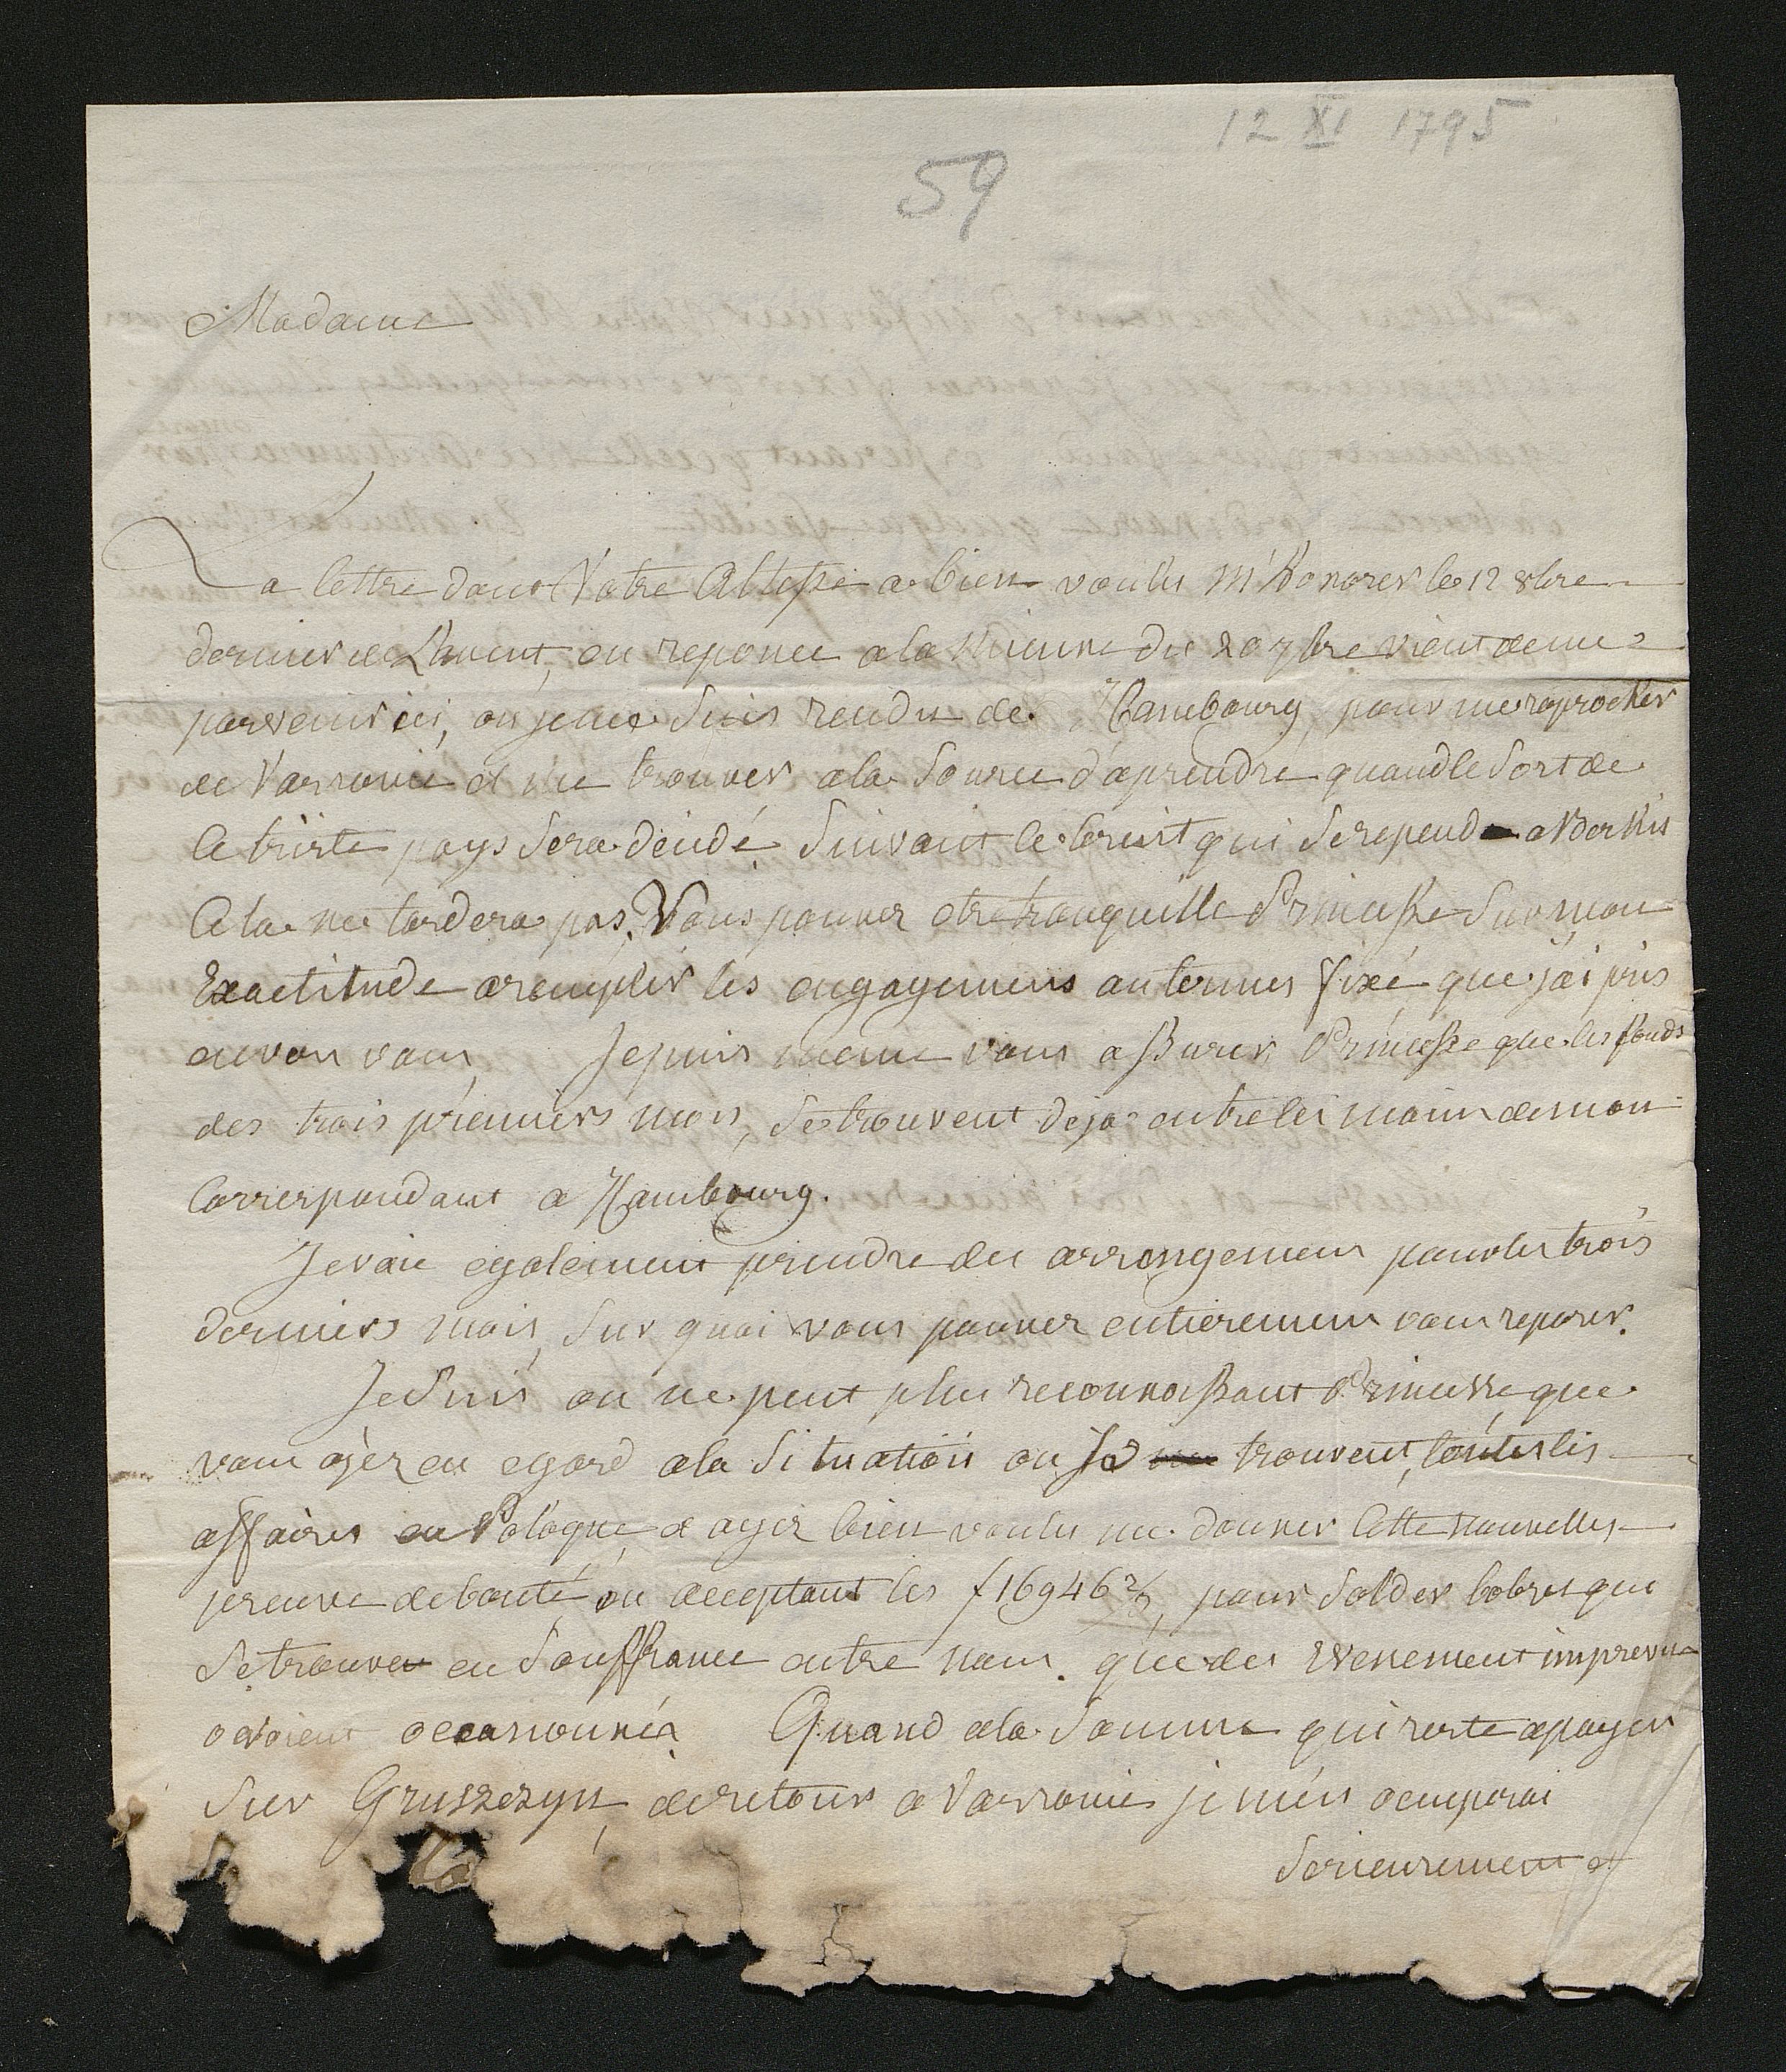 12 XI 1795
59
Madame
La lettre dont Votre Altesse a bien voulu m'honorer le 12 8bre
dernier de Lancut, en reponce a la Mienne du 20 7bre vient de me
parvenir ici, ou je me suis rendu de Hambourg, pour me raprocher
de Varsovie et me trouver a la Source d'aprendre quand le Sort de
Ce triste pays Sera decidé. Suivant le bruit qui Se repend a Berlin
Cela ne tardera pas. Vous pouvez etre tranquille Princesse Sur mon
Exactitude a remplir les engagemens au termes fixé que j'ai pris
envers vous, Je puis meme vous assurer Princesse que les fonds
des trois premiers mois, Se trouvent deja entre les mains de mon
Correspondant a Hambourg.
Je vais egalement prendre des arrangemens pour les trois
derniers mois, Sur quoi vous pouvez entierement vous reposer.
Je Suis on ne peut plus reconnoissant Princesse que
vous ayez eu egard a la Situation ou Se trouvent, toutes les
affaires en Pologne, & ayez bien voulu me donner Cette nouvelles
preuve de bonté, en acceptant les f 16946 2/3, pour Solder
Se trouve en Souffrance entre nous. que des Evenement imprevu
avoient occasionnés Quand a la Somme qui reste a payer
Sur Gruszczyn, de retour a Varsovie je m'en ocuperai
Serieusement et